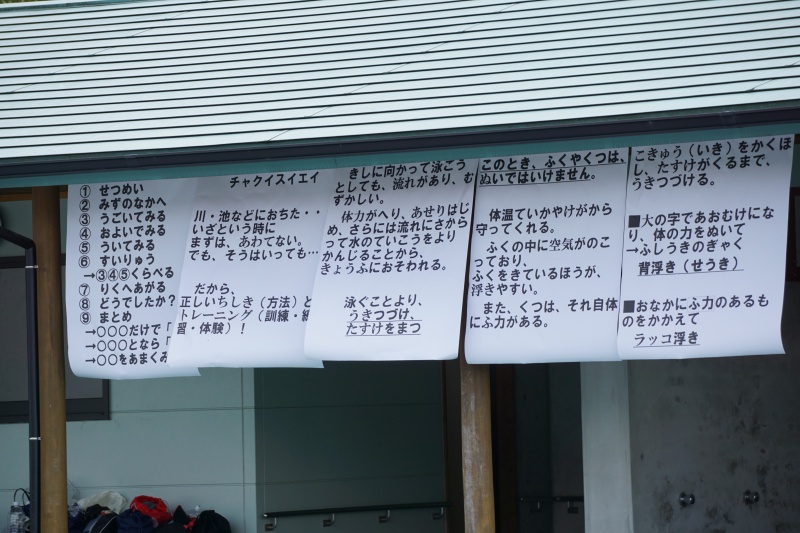 ① せつめい
② みずのなかへ
③ うごいてみる
④ およいでみる
⑤ ういてみる
⑥ すいりゅう
→③④⑤くらべる
⑦ りくへあがる
⑧ どうでしたか?
⑨ まとめ
→〇〇〇だけで「
→〇〇〇となら「
→〇〇をあまくみ
チャクイスイエイ
川・池などにおちた・・
いざという時に
まずは、あわてない。
でも、そうはいっても…
だから、
正しいちしき(方法)と
トレーニング(訓練・練
習・体験)!
きしに向かって泳ごう
としても、流れがあり、む
ずかしい。
体力がへり、あせりはじ
め、さらには流れにさから
って水のていこうをより
かんじることから、
きょうふにおそわれる。
泳ぐことより、
うきつづけ、
たすけをまつ
このとき、ふくやくつは、
ぬいではいけません。
体温ていかやけがから
守ってくれる。
ふくの中に空気がのこ
っており、
ふくをきているほうが、
浮きやすい。
また、くつは、それ自体
にふ力がある。
こきゅう(いき)をかくほ
し、たすけがくるまで、
うきつづける。
■大の字であおむけにな
り、体の力をぬいて
→ふしうきのぎゃく
背浮き(せうき)
■おなかにふ力のあるも
のをかかえて
ラッコ浮き